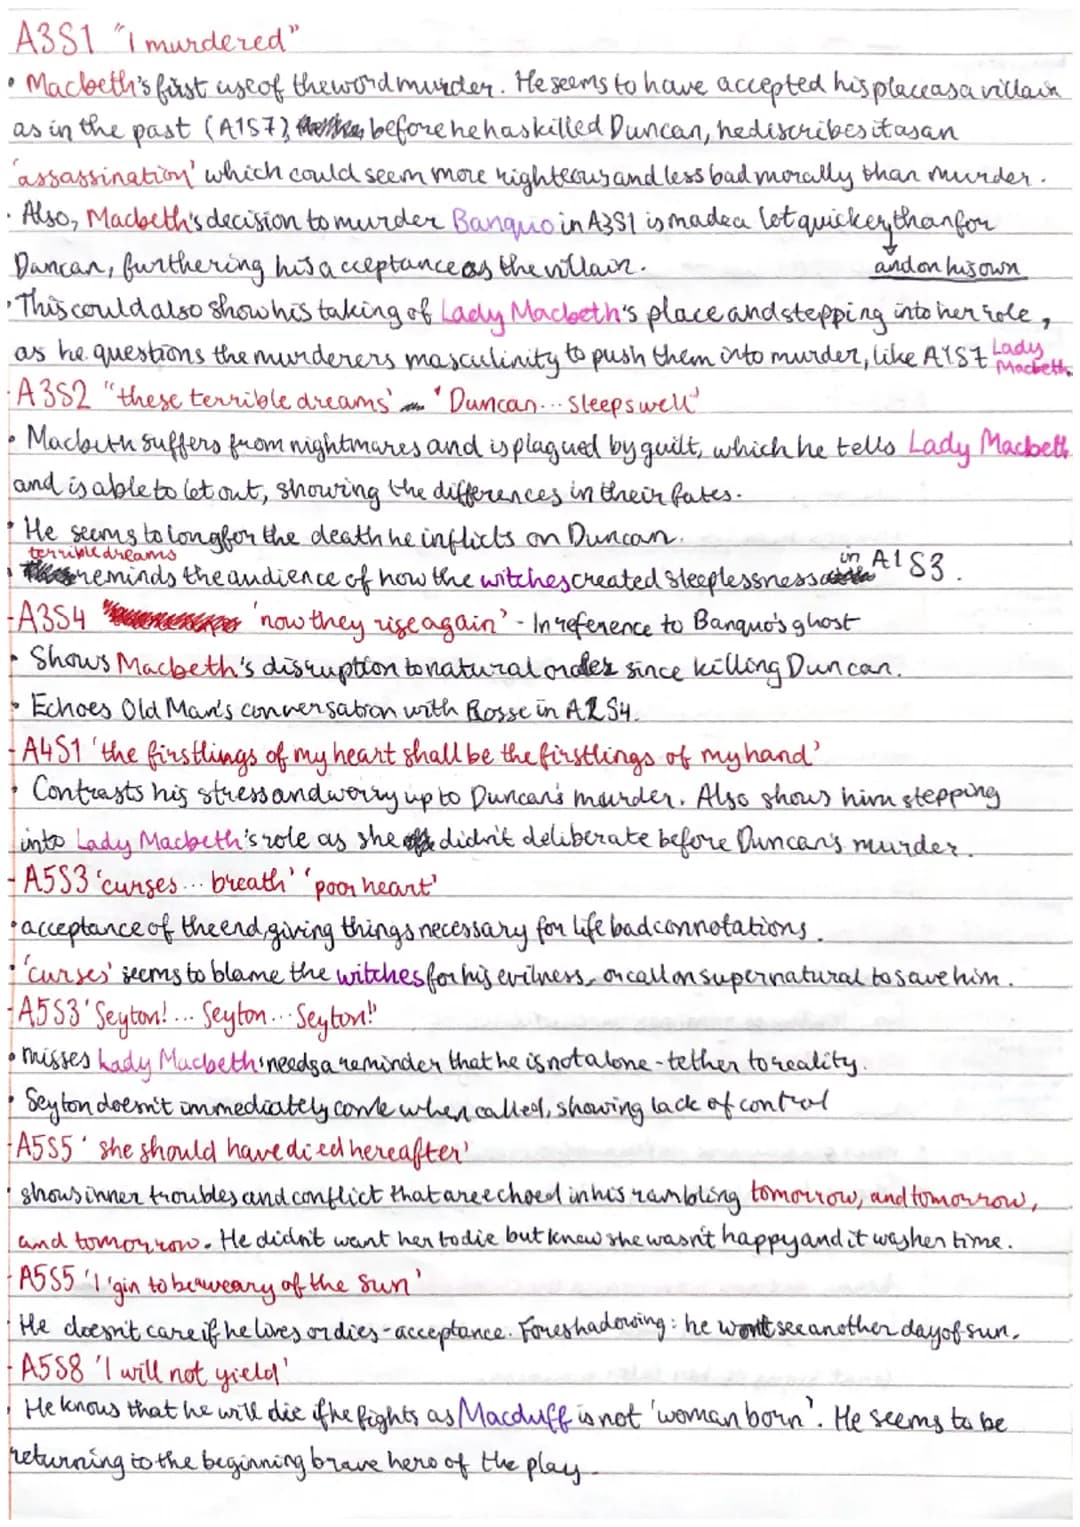 A3S1 "I murdered"
• Macbeth's first use of the word murder. He seems to have accepted his place as a villain
as in the past (A1S7), before he has killed Duncan, he discribes it as an
'assassination' which could seem more righteous and less bad morally than murder.
• Also, Macbeth's decision to murder Banquo in A3S1 is made a lot quicker, than for
Duncan, furthering his acceptance as the villain. and on his own
• This could also show his taking of Lady Macbeth's place and stepping into her role,
as he questions the murderers masculinity to push them into murder, like A1S7 Lady Macbeth.
- A3S2 "these terrible dreams' 'Duncan... sleeps well'
• Macbeth suffers from nightmares and is plagued by guilt, which he tells Lady Macbeth
and is able to let out, showing the differences in their fates.
• He seems to long for the death he inflicts on Duncan.
• terrible dreams reminds the audience of how the witches created sleeplessness in A1S3.
- A3S4 'now they rise again' - In reference to Banquo's ghost
• Shows Macbeth's disruption to natural order since killing Duncan.
• Echoes Old Man's conversation with Rosse in A2S4.
- A4S1 'the firstlings of my heart shall be the firstlings of my hand'
• Contrasts his stress and worry up to Duncan's murder. Also shows him stepping
into Lady Macbeth's role as she didn't deliberate before Duncan's murder.
- A5S3 'curses... breath' 'poor heart'
• acceptance of the end, giving things necessary for life bad connotations.
• 'curses' seems to blame the witches for his evilness, or call on supernatural to save him.
- A5S3 'Seyton! ... Seyton... Seyton!'
• misses Lady Macbeth: needs a reminder that he is not alone - tether to reality.
• Seyton doesn't immediately come when called, showing lack of control
- A5S5 'she should have died hereafter'
• shows inner troubles and conflict that are echoed in his rambling tomorrow, and tomorrow,
and tomorrow. He didn't want her to die but knew she wasn't happy and it was her time.
- A5S5 'I 'gin to be aweary of the sun'
• He doesn't care if he lives or dies - acceptance. Foreshadowing: he wont see another day of sun.
- A5S8 'I will not yield'
• He knows that he will die if he fights as Macduff is not 'woman born'. He seems to be
returning to the beginning brave hero of the play.